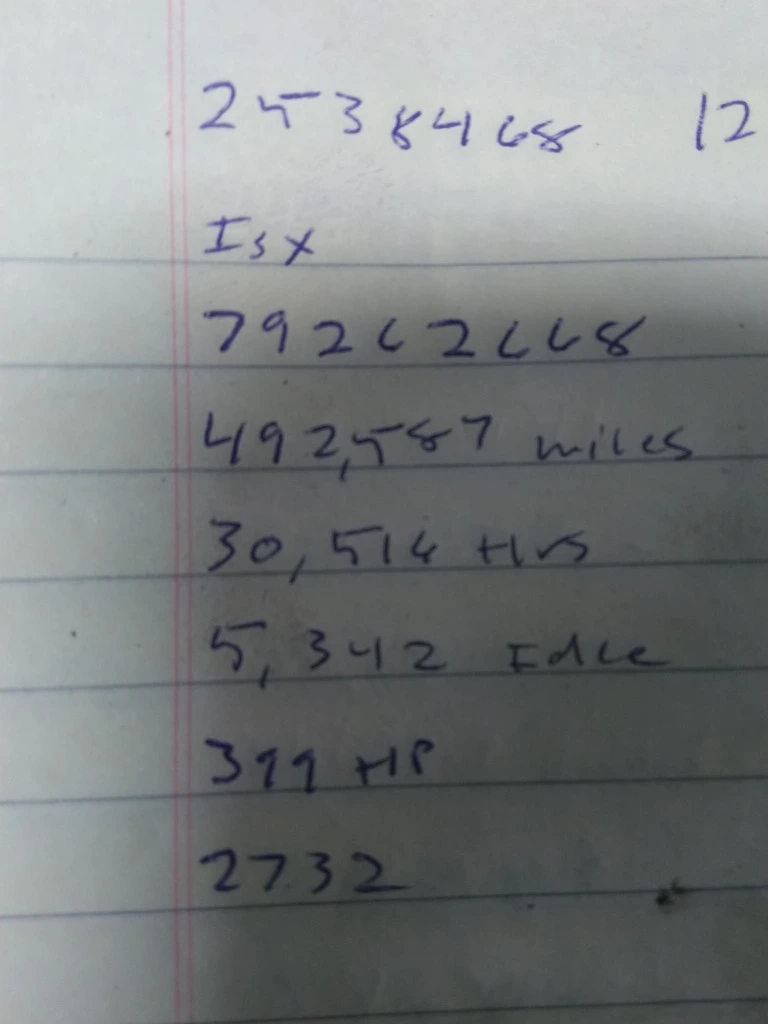 25384668 12
Isx
79262668
492,587 miles
30,516 Hrs
5,342 Idle
399 HP
2732